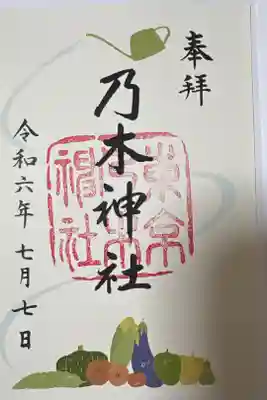 奉拝
乃木神社
東京乃木神社
令和六年七月七日